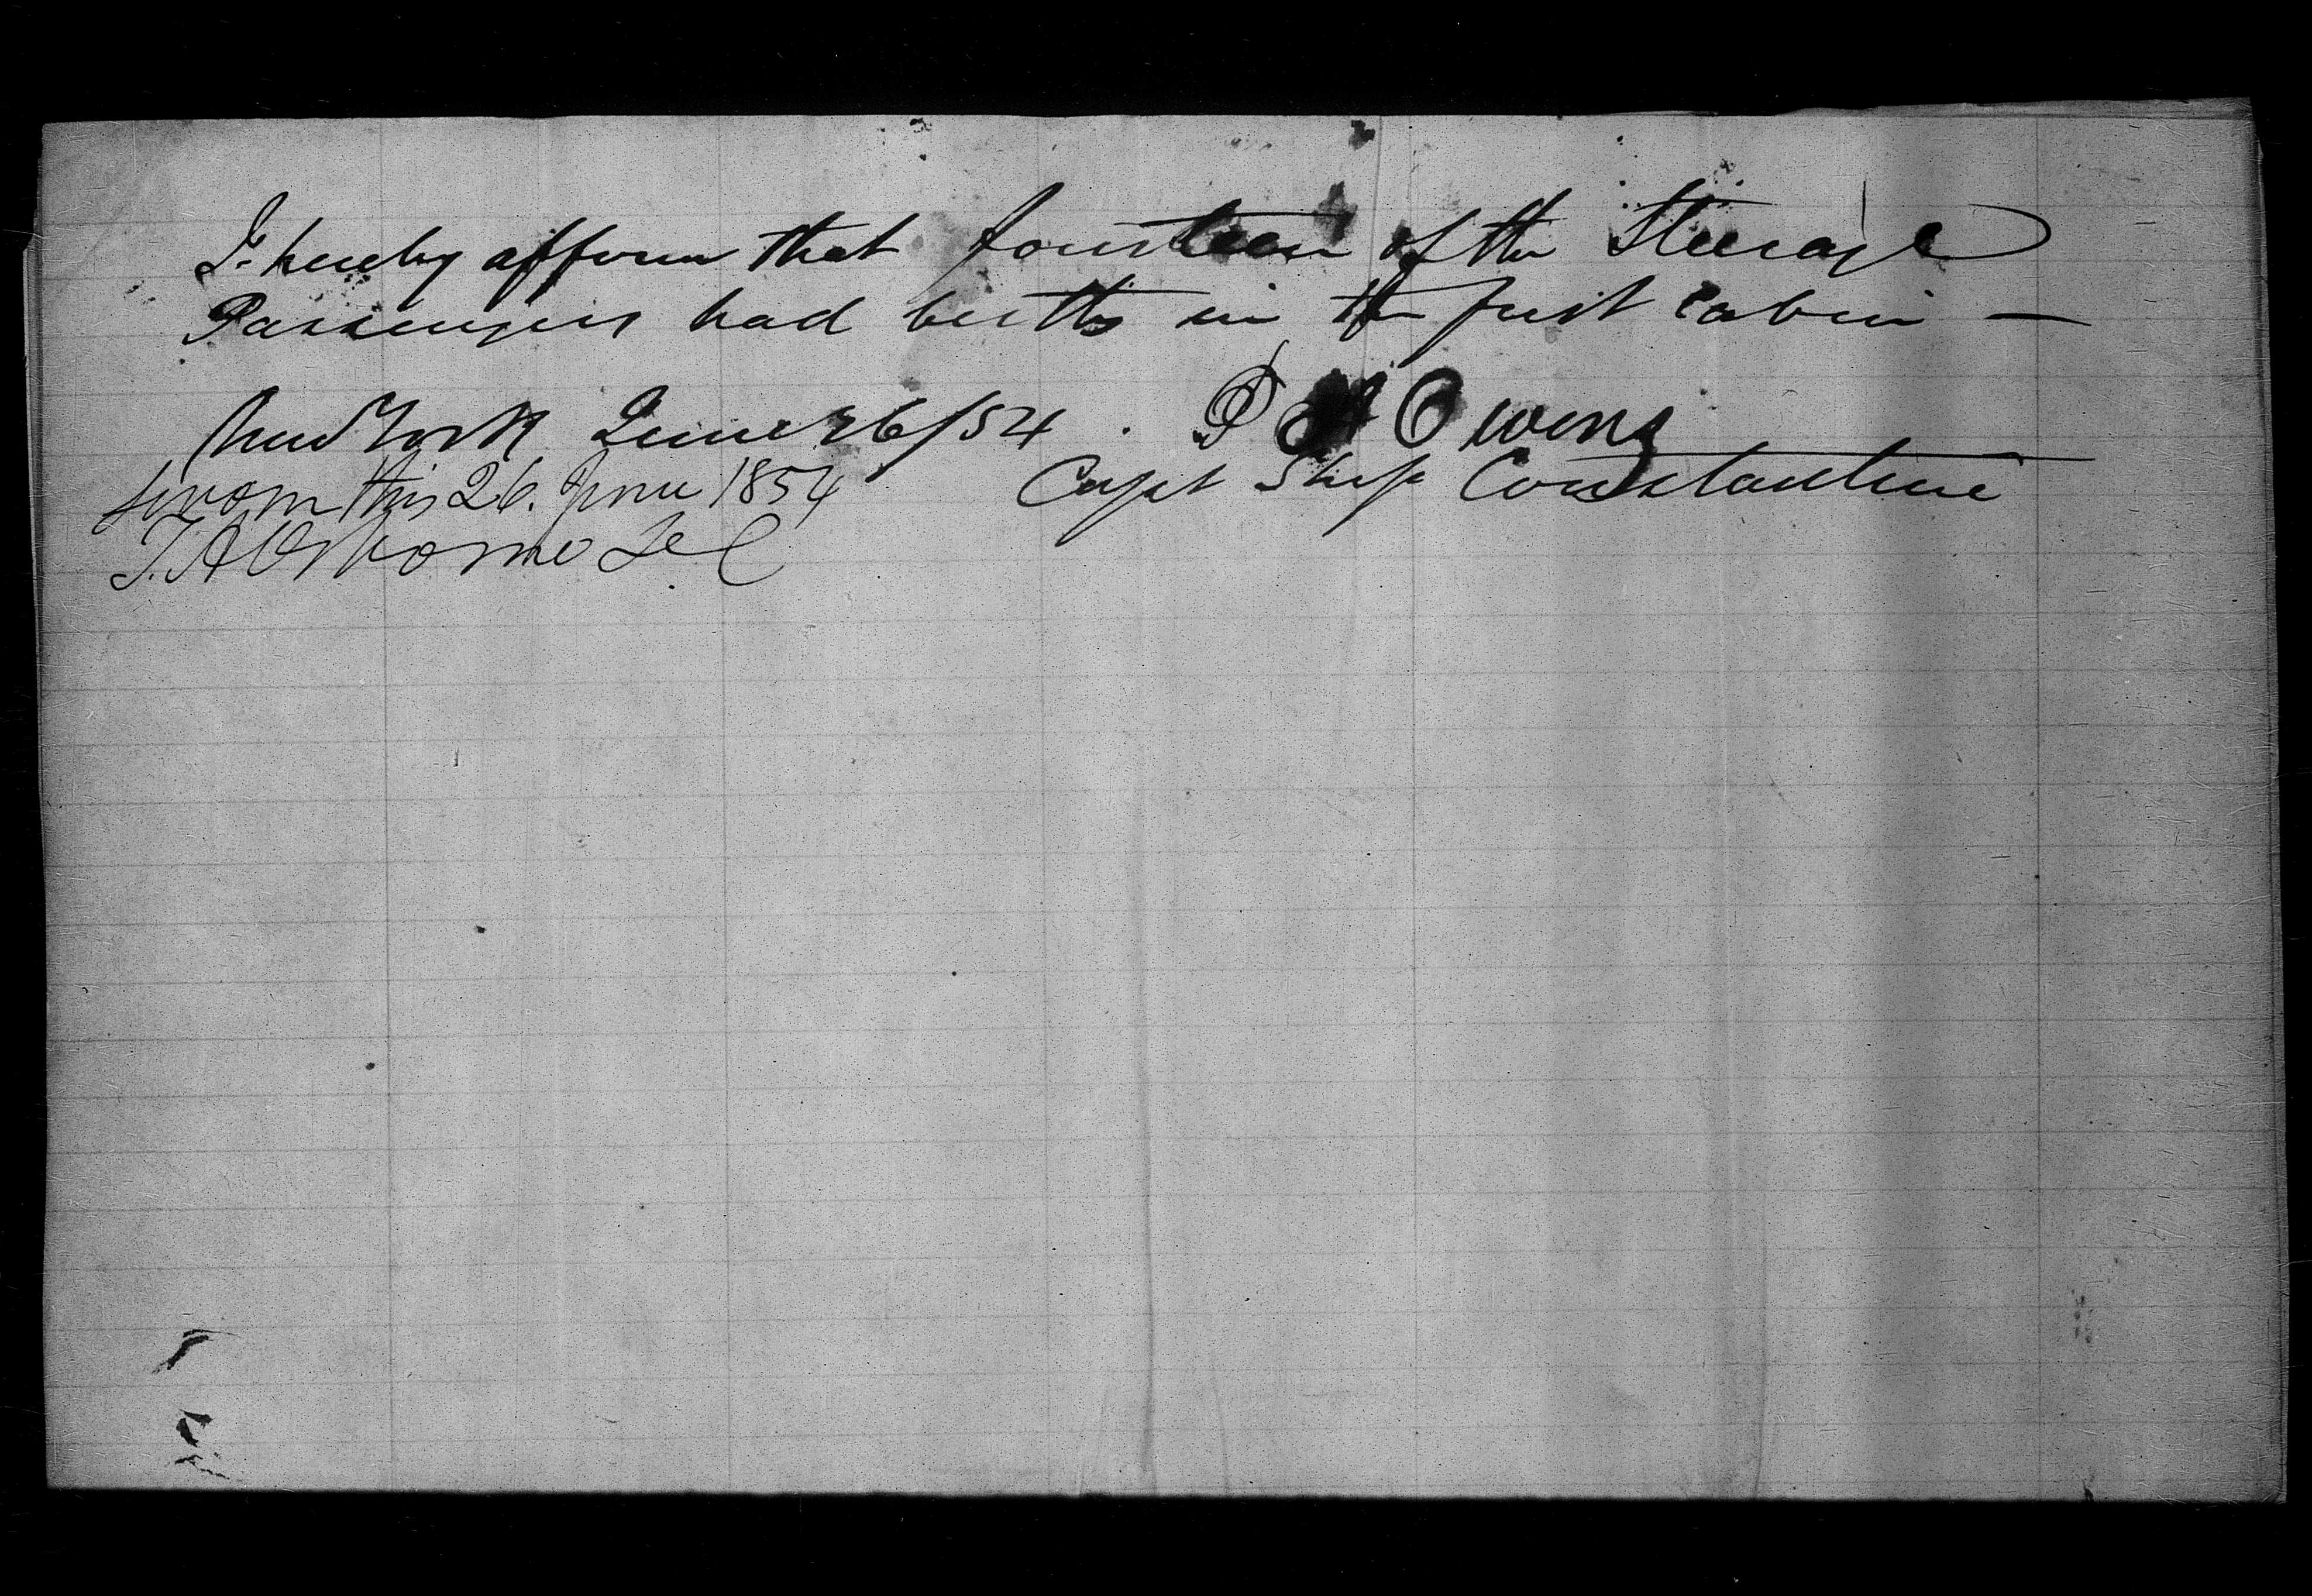 I hereby affirm that fourteen of the Steerage
Passengers had berths in the first cabin —
New York June 26/54. Owens
Capt Ship Constantine
Sworn this 26. June 1854